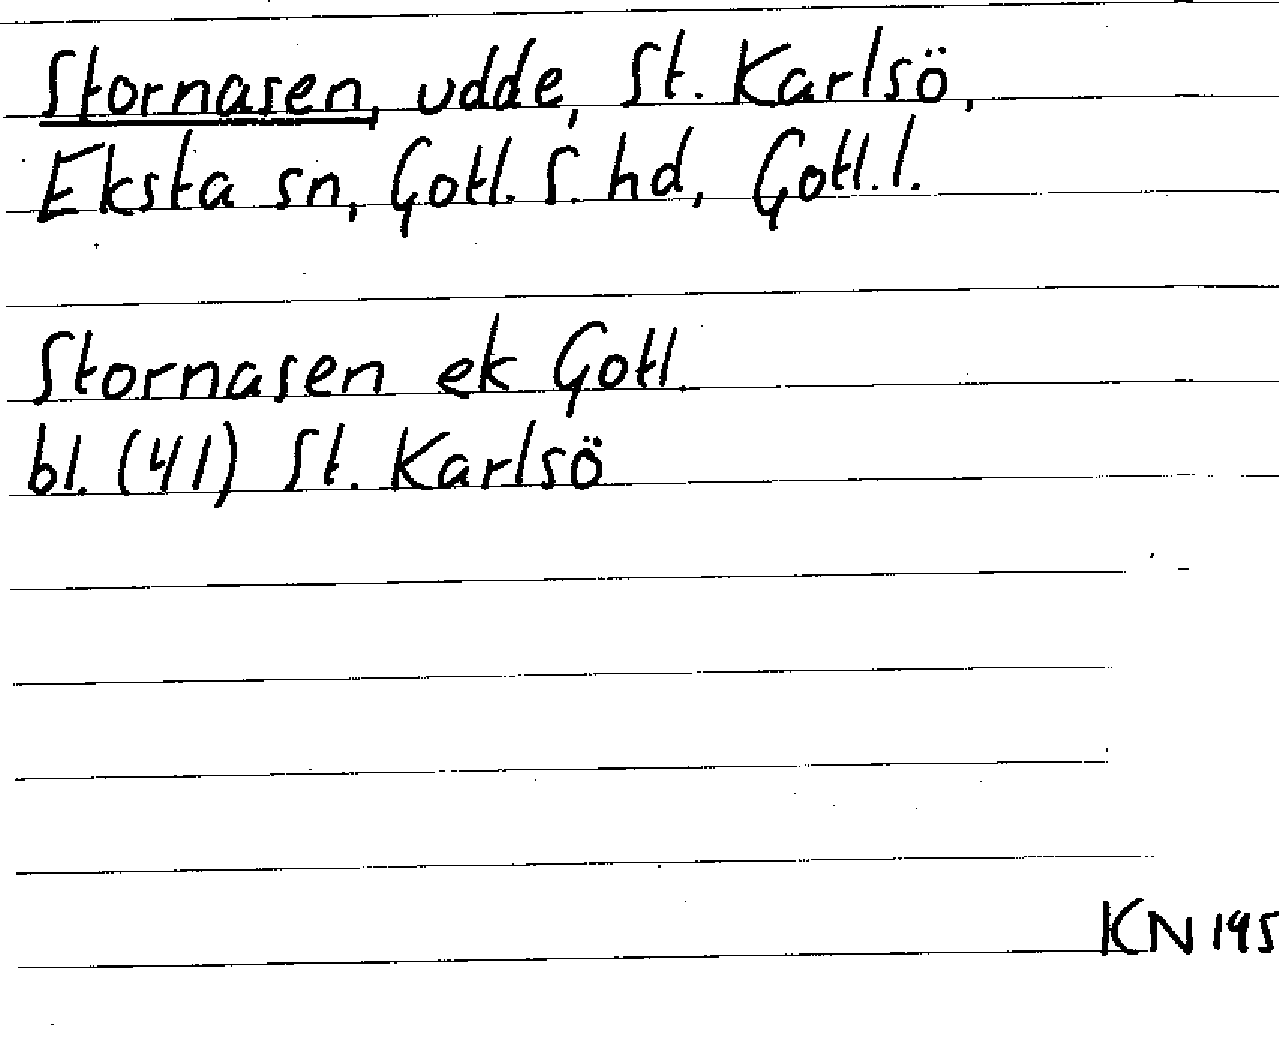 Stornasen, udde, St. Karlsö,
Eksta sn, Gotl. S. hd, Gotl. l.
Stornasen ek Gotl.
bl. (41) St. Karlsö
KN 195